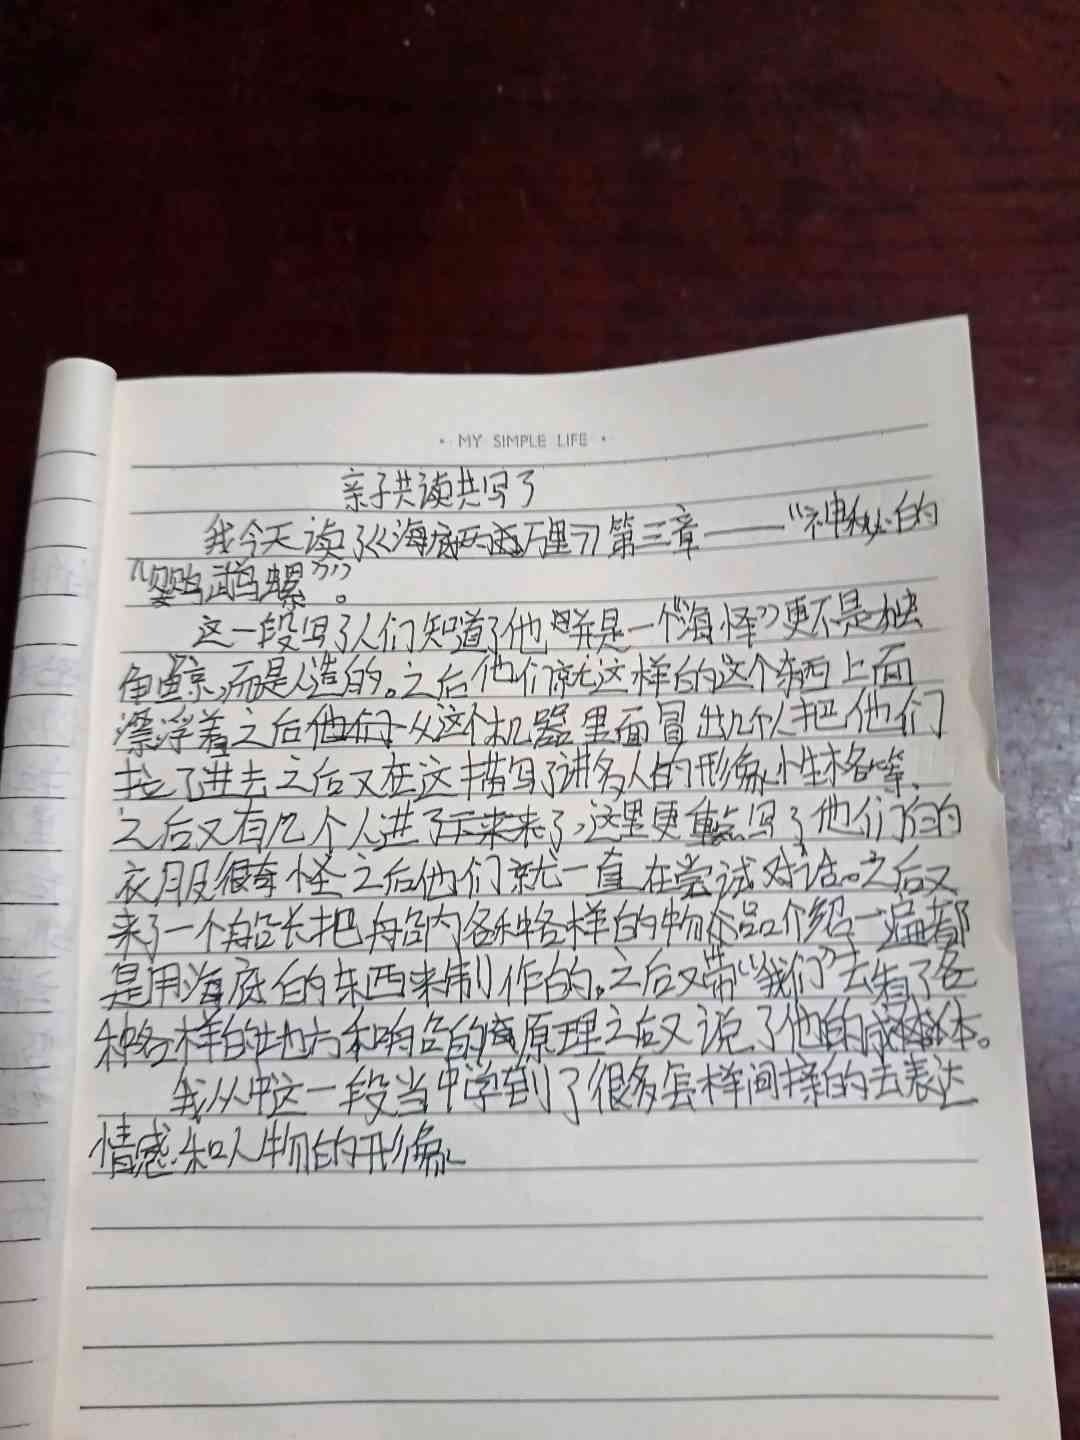 · MY SIMPLE LIFE ·
亲子共读共写了
我今天读了《海底两万里》第三章——“神秘的
“鹦鹉螺””。
这一段写了人们知道了他 并是一个“海怪”更不是独
角鲸,而是人造的。之后他们就这样的这个东西上面
漂浮着之后从这个机器里面冒出几个人把他们
拉了进去之后又在这描写了讲多人的形象、性格等、
之后又有几个人进了来了,这里更重点写了他们的
衣服很奇怪之后他们就一直在尝试对话。之后又
来了一个船长把船内各种各样的物品介绍一遍都
是用海底的东西来制作的。之后又带“我们”去看了各
种各样的地方和船的原理之后又说了他的成体。
我从中这一段当中学到了很多怎样间接的去表达
情感和人物的形象